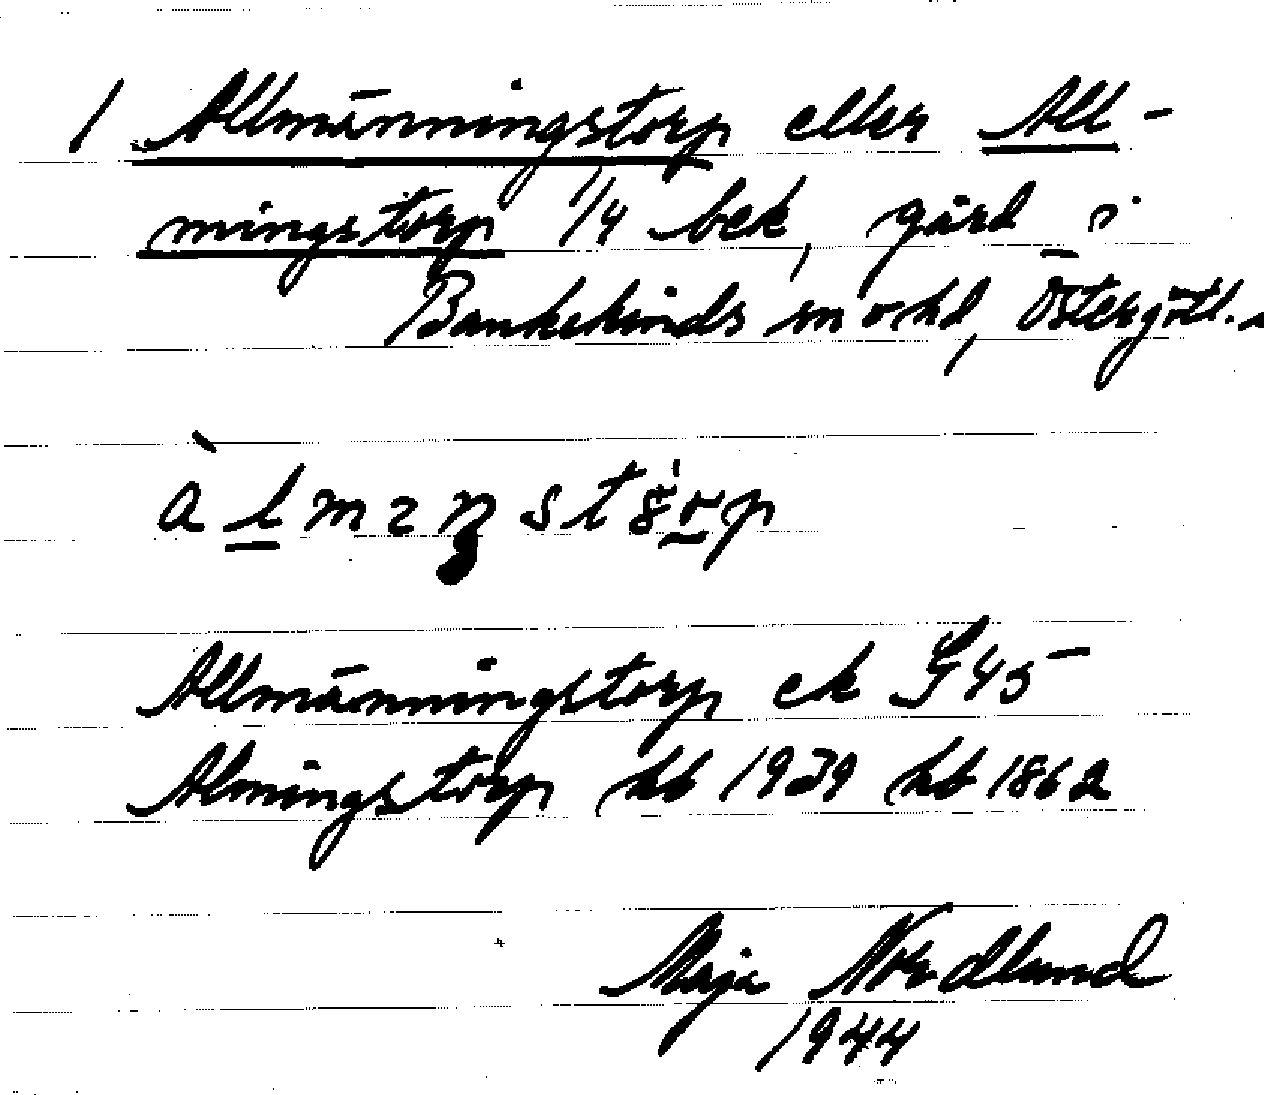 1 Allmänningstorp eller All-
mingstorp 1/4 bek, gård i
Bankekinds sn o hd, Östergötl.
àlmɜŋstorp
Allmänningstorp ek G 45
Almingstorp kb 1939 hb 1862
Maja Nordlund
1944